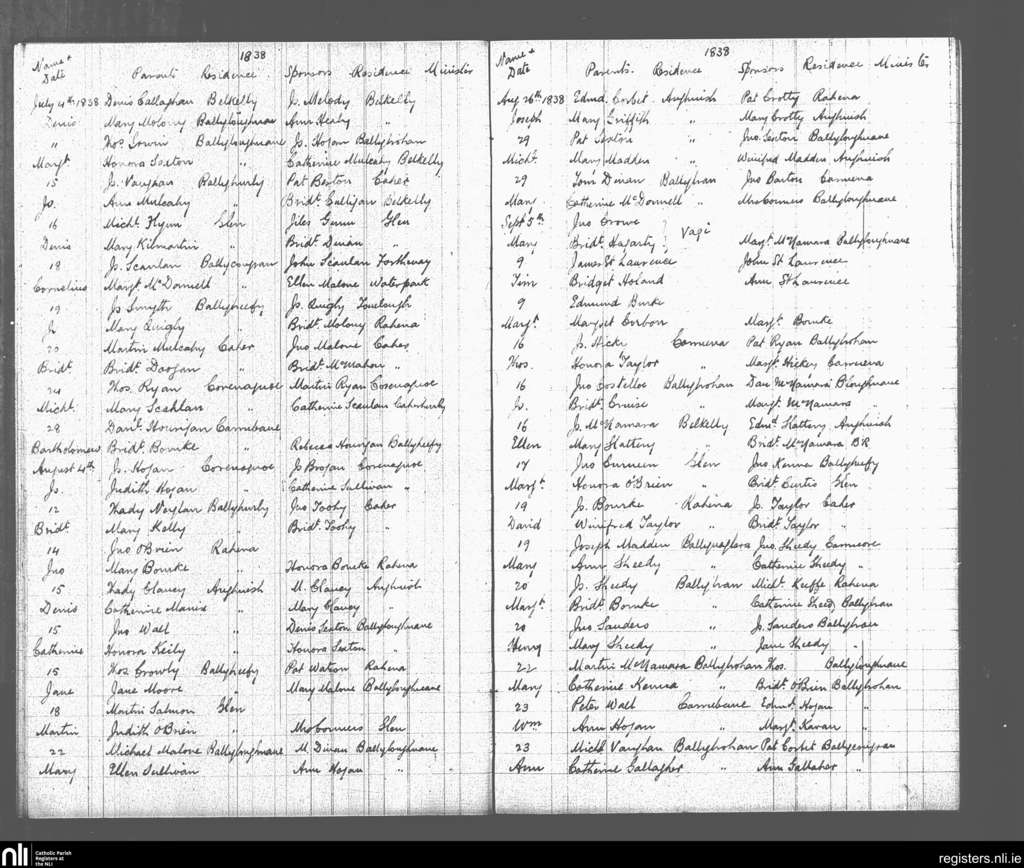 1838
Name + Date Parents Residence Sponsors Residence Minister
July 4th 1838 Denis Callaghan Belkelly Js. Melody Belkelly
Denis Mary Molony Ballyloughnane Ann Healy "
" Thos. Ballyloughnane Js. Hogan Ballybrohan
Margt. Honora Sexton " Catherine Mulcahy Belkelly
15 Js. Vaughan Ballyhurly Pat Barton Caher
Js. Ann Mulcahy " Bridt. Culligan Belkelly
16 Michl. Flynn Glen Jiles Gunn Glen
Denis Mary Kilmartin " Bridt. Dinan "
18 Js. Scanlan Ballycougran John Scanlan
Cornelius Margt. McDonnell " Ellen Malone Waterpark
19 Js Smyth Ballyheefy Js. Quigly
Js Mary Quigly " Bridt. Molony Rahena
20 Martin Mulcahy Caher Jno Malone Caher
Bridt Bridt. Doogan " Bridt. McMahon "
24 Thos. Ryan Corenaguoe Martin Ryan Corenaguoe
Michl. Mary Scanlan " Catherine Scanlan Caherhurly
28 Danl. Hourigan Carnebane
Bartholomew Bridt. Bourke " Rebecca Hourigan Ballyheefy
August 4th Js. Hogan Corenaguoe Js Brogan Corenaguoe
Js. Judith Hogan " Catherine Sullivan "
12 Thady Neylan Ballyhurly Jno Toohy Caher
Bridt. Mary Kelly " Bridt. Toohy "
14 Jno O'Brien Rahena
Jno Mary Bourke " Honora Bourke Rahena
15 Thady Clancy Aughinish M. Clancy Aughinish
Denis Catherine " Mary Clancy "
15 Jno Wall " Denis Sexton Ballyloughnane
Catherine Honora Keily " Honora Sexton "
15 Thos Crowly Ballyheefy Pat Watson Rahena
Jane Jane Moore " Mary Malone Ballyloughnane
18 Martin Salmon Glen
Martin Judith O'Brien " Mrs Conners Glen
22 Michael Malone Ballyloughnane M. Dinan Ballyloughnane
Mary Ellen Sullivan Ann Hogan "
1838
Name + Date Parents. Residence Sponsors Residence Minister
Aug 26th 1838 Edmd. Corbet Aughinish Pat Crotty Rahena
Joseph Mary Griffith " Mary Crotty Aughinish
29 Pat Sexton " Jno. Sexton Ballyloughnane
Michl. Mary Madden " Winifred Madden Aughinish
29 Tom Dinan Ballybran Jno Barton
Mary Catherine McDonnell " Mrs Conners Ballyloughnane
Sept 5th Jno Crowe
Mary Bridt Hagarty } Vagi Margt. McNamara Ballyloughnane
9 James St Laurence John St Laurence
Tim Bridget Holand Ann St Laurence
9 Edmund Burke
Margt. Margret Corbon Margt. Bourke
16 Js. Hicke Pat Ryan Ballybrohan
Thos. Honora Taylor " Margt. Hickey
16 Jno Costelloe Ballybrohan Dan McNamara Bloughnane
Js. Bridt. Cruise " Margt. McNamara "
16 J. McNamara Belkelly Edmd. Slattery Aughinish
Ellen Mary Slattery " Bridt. McNamara BR
17 Jno Glen Jno. Kenna Ballyheefy
Margt. Honora O'Brien " Bridt. Curtis Glen
19 Js. Bourke Rahena Js. Taylor Caher
David Winifred Taylor " Bridt. Taylor "
19 Joseph Madden Jno. Sheedy
Mary Ann Sheedy " Catherine Sheedy "
20 Js. Sheedy Ballybran Michl. Keeffe Rahena
Margt. Bridt. Bourke " Catherine Sheedy Ballybran
20 Jno Sanders " Js. Sanders Ballybran
Henry Mary Sheedy " Jane Sheedy "
22 Martin McNamara Ballybrohan Thos. Ballyloughnane
Mary Catherine Kenna " Bridt. O'Brien Ballybrohan
23 Peter Wall Carnebane Edmd. Hogan "
Wm Ann Hogan " Margt. Kavan "
23 Michl. Vaughan Ballybrohan Pat Corbet Ballycougran
Ann Catherine Gallagher " Ann Gallaher "
nli Catholic Parish Registers at the NLI
registers.nli.ie